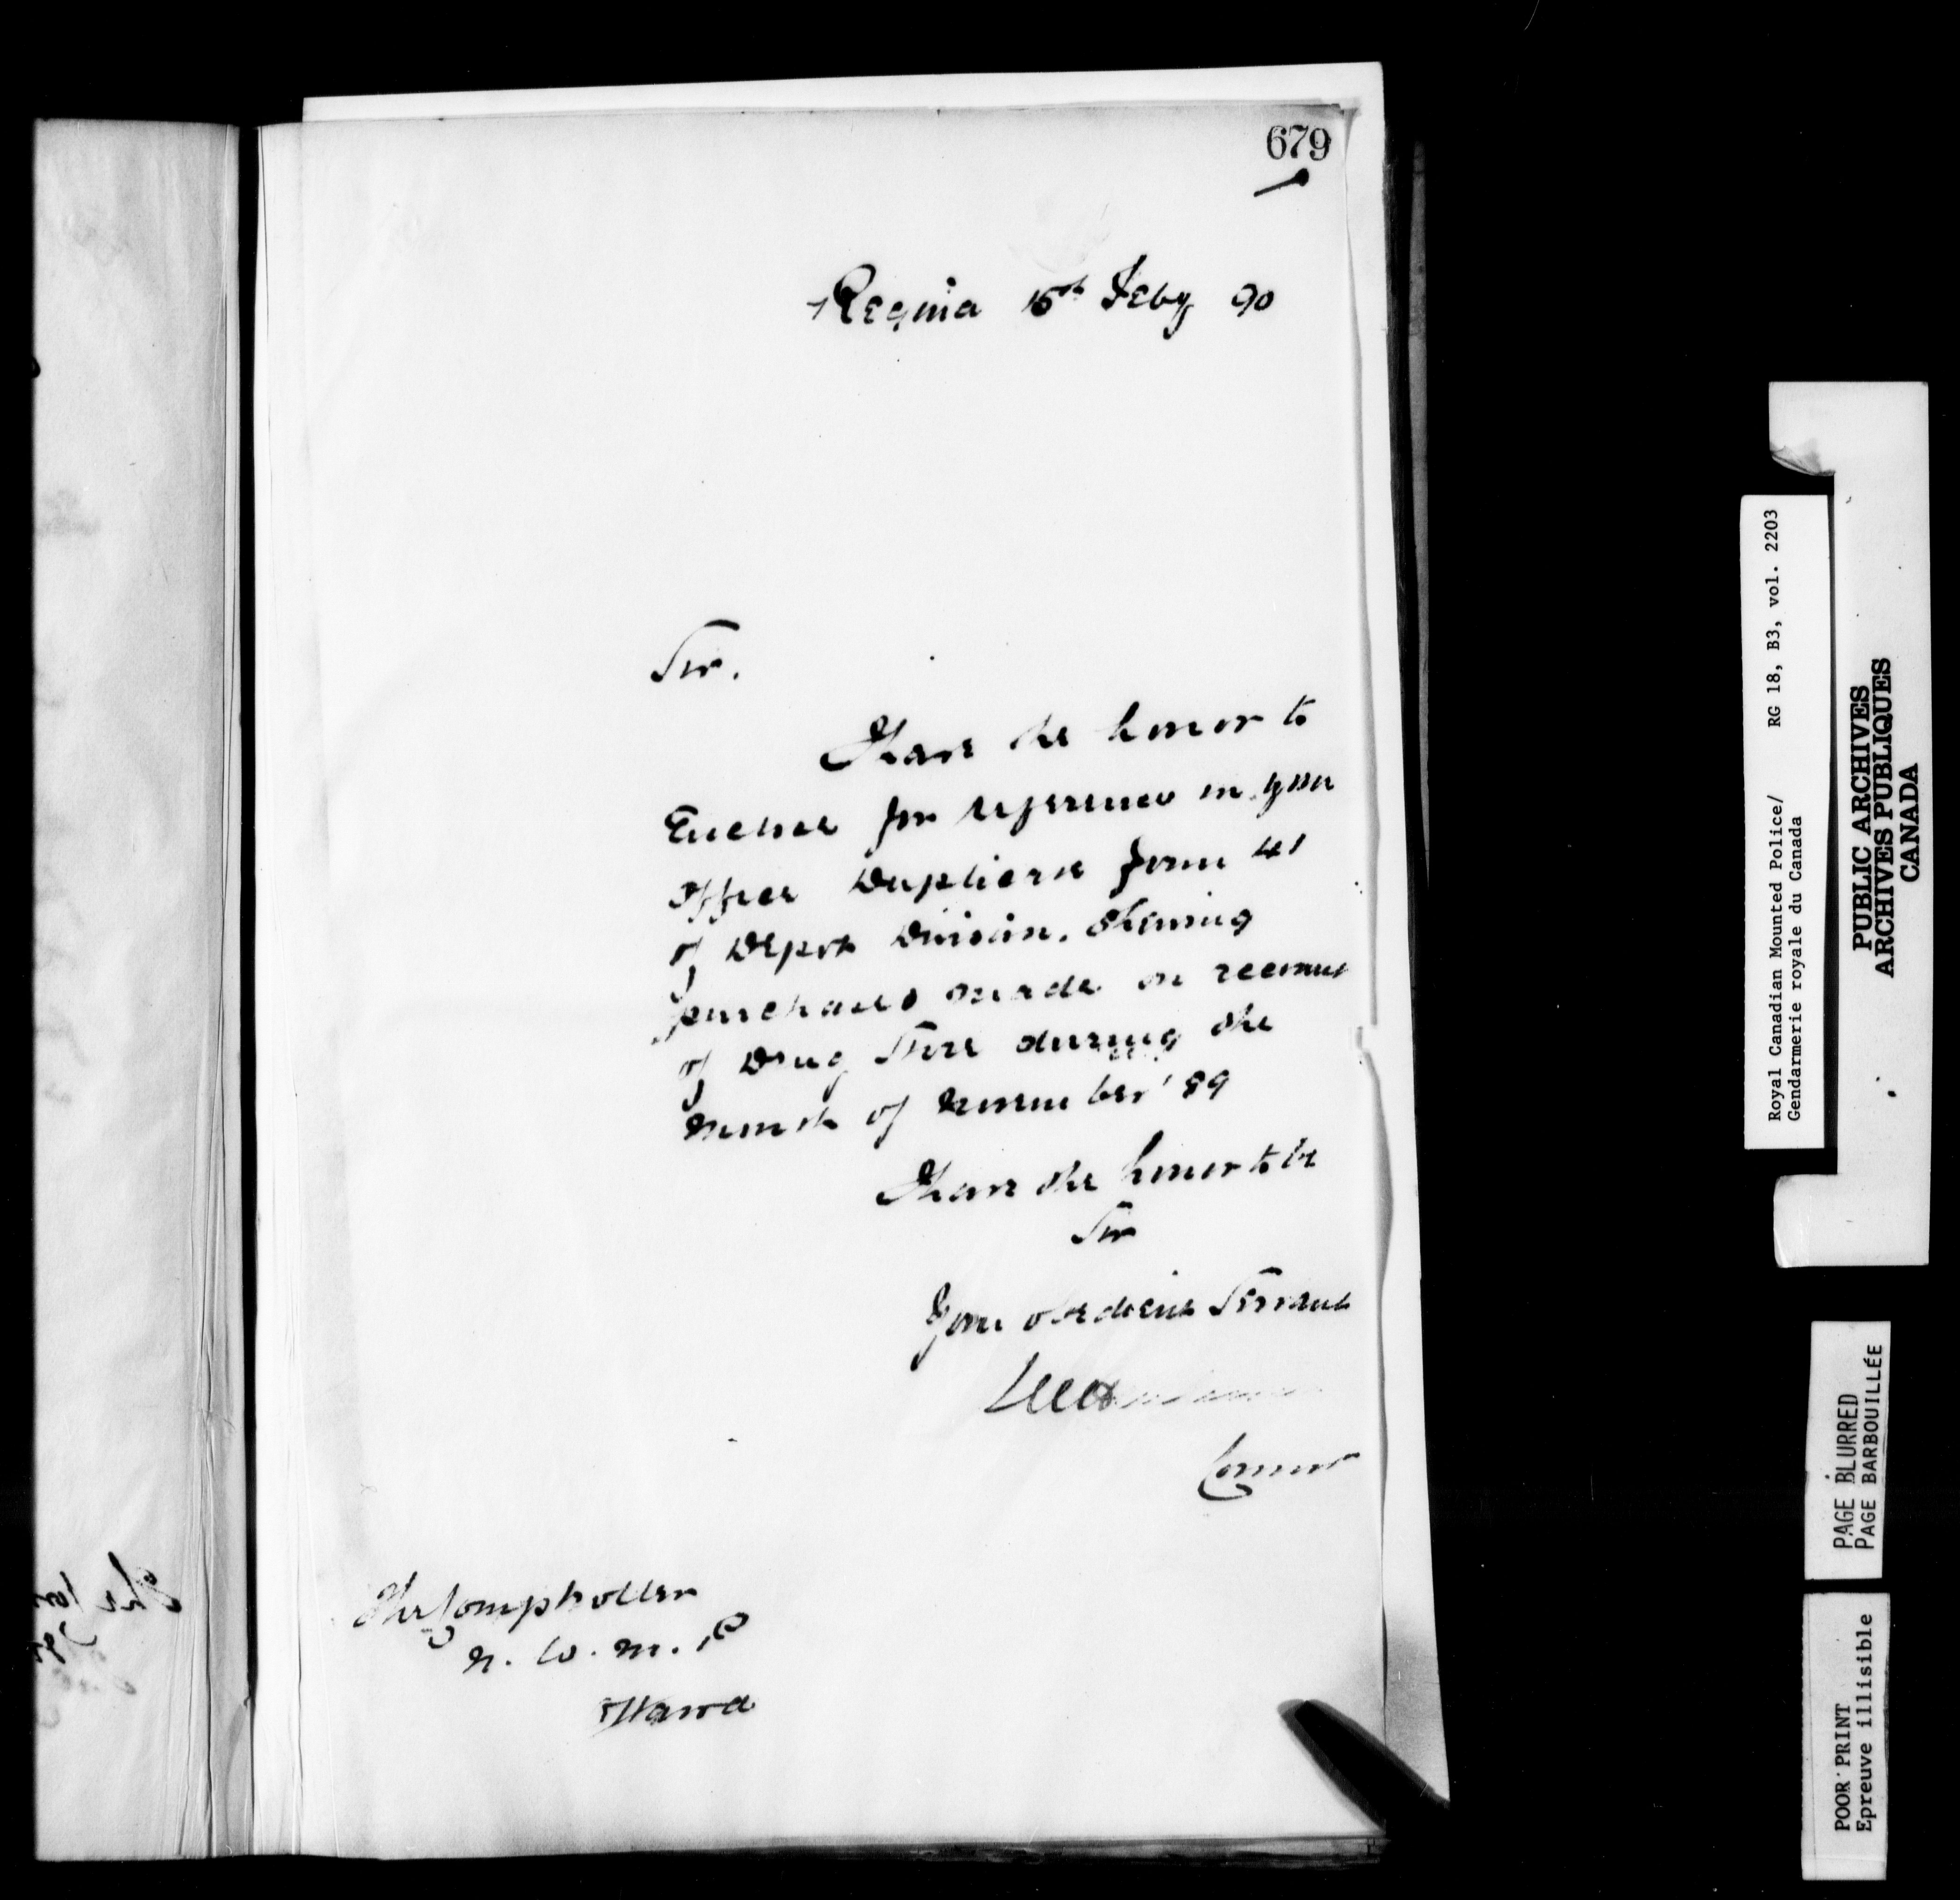 679
Regina 15th Feby 90
Sir.
I have the honor to
Enclose for reference in your
Office Duplicate form 41
of Depot Division. Shewing
purchases made on account
of Drug Store during the
month of November '89
I have the honor to be
Sir
Your obedient Servant
Commr
The Comptroller
N. W. M. P
Ottawa
Royal Canadian Mounted Police/ RG 18, B3, vol. 2203
Gendarmerie royale du Canada
PUBLIC ARCHIVES
ARCHIVES PUBLIQUES
CANADA
PAGE BLURRED
PAGE BARBOUILLÉE
POOR PRINT
Epreuve illisible